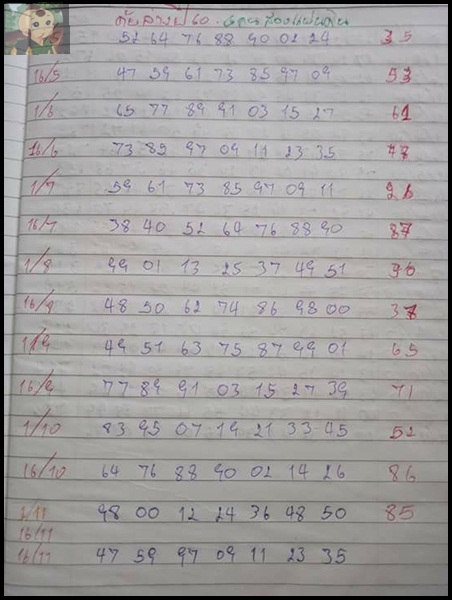 ตัวล่างปี 60
52 64 76 88 90 02 24 35
16/5 47 59 61 73 85 97 09 53
1/6 65 77 89 91 03 15 27 61
16/6 73 85 97 09 11 23 35
1/7 59 61 73 85 97 09 11 26
16/7 38 40 52 64 76 88 90 87
1/8 99 01 13 25 37 49 51 96
48 50 62 74 86 98 00
1/9 49 51 63 75 87 99 01 65
16/9 77 89 91 03 15 27 39 71
1/10 83 95 07 19 21 33 45 52
16/10 64 76 88 90 02 14 26 86
1/11 98 00 12 24 36 48 50 85
16/11
16/11 47 59 97 09 11 23 35